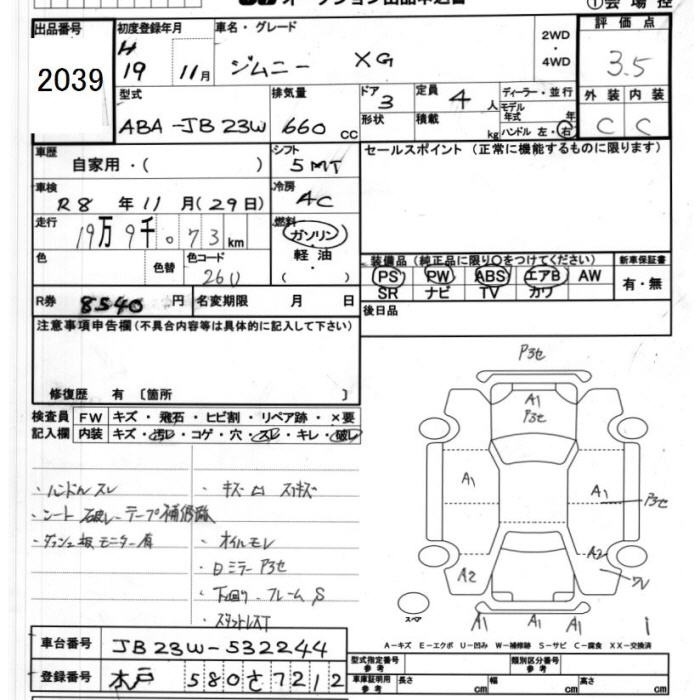 出品番号 初度登録年月 車名・グレード 評価点
2039
H 19 11月 ジムニー XG 2WD・4WD 3.5
型式 排気量 ドア 定員 ディーラー・並行 外装 内装
ABA-JB23W 660 cc 3 4人 モデル年式 年 C C
形状 積載 kg ハンドル 左・右
車歴 シフト セールスポイント (正常に機能するものに限ります)
自家用・( ) 5MT
車検 冷房
R8年 11月(29日) AC
走行 燃料
19万9千073km ガソリン
色 色替 色コード 軽油
26U ( )
装備品 (純正品に限り○をつけてください) 新車保証書
PS PW ABS エアB AW 有・無
SR ナビ TV カワ
R券 8540円 名変期限 月 日 後日品
注意事項申告欄(不具合内容等は具体的に記入して下さい)
修復歴 有 〔箇所 〕
検査員 FW キズ・飛石・ヒビ割・リペア跡・×要
記入欄 内装 キズ・汚レ・コゲ・穴・スレ・キレ・破レ
・ハンドルスレ
・シート破レ テープ補修
・ダッシュ板モニター有
・オイルモレ
・ロミラー P3セ
・下回り フレームS
P3セ
A1
P3セ
A1
A1
P3セ
A2
A2
ワレ
スペア
A1 A1 A1
A-キズ E-エクボ U-凹み W-補修跡 S-サビ C-腐食 XX-交換済
車台番号 JB23W-532244
登録番号 水戸 580 さ 7212
型式指定番号 参考 類別区分番号 参考
車庫証明用 参考 長さ cm 幅 cm 高さ cm